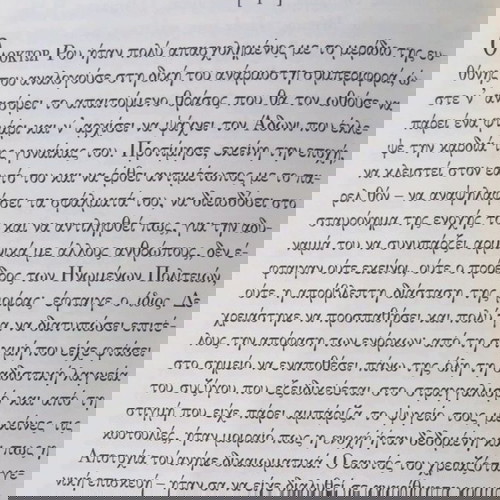 Ο ΔΟΚΤΩΡ Ρου ήταν πολύ απασχολημένος με το μερίδιο της ευ-
θύνης που αναλογούσε στη δική του ανάρμοστη συμπεριφορά ώ-
στε ν' αντλήσει το απαιτούμενο θράσος που θα τον ωθούσε να
πάρει ένα και ν' αρχίσει να ψάχνει τον Άδωνι που έκλε-
ψε την καρδιά της γυναίκας του. Προτίμησε εκείνη την εποχή
να κλειστεί στον εαυτό του και να έρθει αντιμέτωπος με το πα-
ρελθόν – να αναψηλαφήσει τα σφάλματά του, να διεισδύσει στο
σταυρόνημα της ενοχής του και να αντιληφθεί πως, για την αδυ-
ναμία του να συνυπάρξει αρμονικά με άλλους ανθρώπους, δεν έ-
φταιγαν ούτε εκείνοι, ούτε ο πρόεδρος των Ηνωμένων Πολιτειών,
ούτε η απρόβλεπτη διάσταση της μοίρας· έφταιγε ο ίδιος. Δε
χρειάστηκε να προσπαθήσει και πολύ για να διατυπώσει επιτέ-
λους την απόφαση των ενόρκων· από τη στιγμή που είχε φτάσει
στο σημείο να εναποθέσει πάνω της όλη τη
του συζύγου που εξειδικεύεται στο και από τη
στιγμή που είχε πάρει αμπάριζα το ψυγείο τους με κάποιες
κουτουλιές, ήταν μοιραίο πως η ενοχή ήταν δεδομένη και πως η
Λισιστούλα του ανήκε δικαιωματικά. Ο εαυτός του χρειαζόταν γε-
νική επισκευή – ήταν σα να είχε